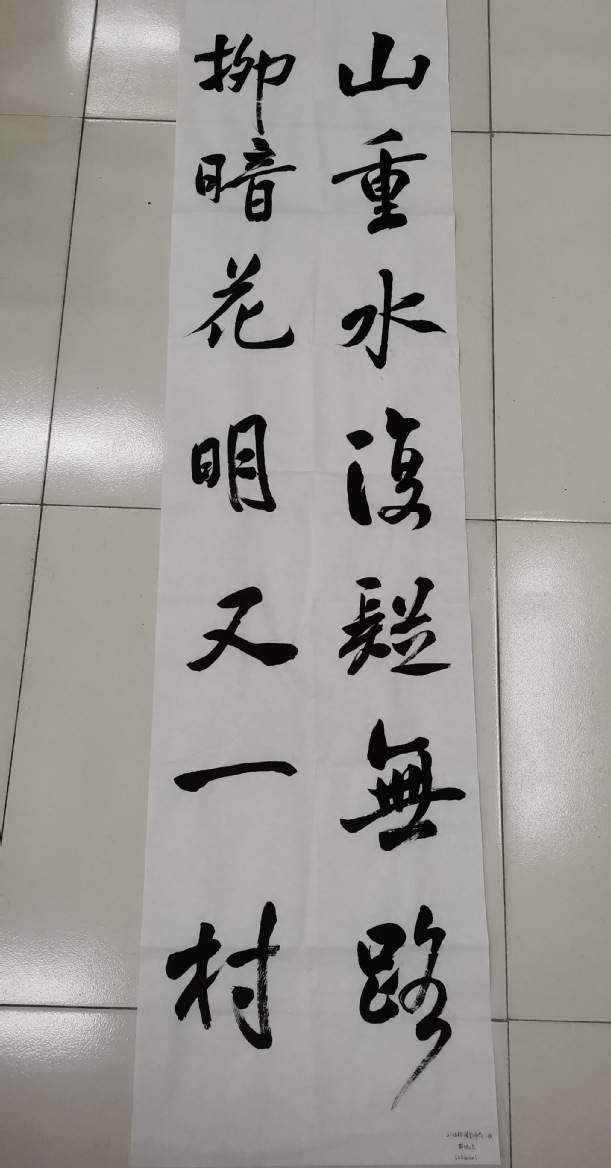 山重水復疑無路
柳暗花明又一村